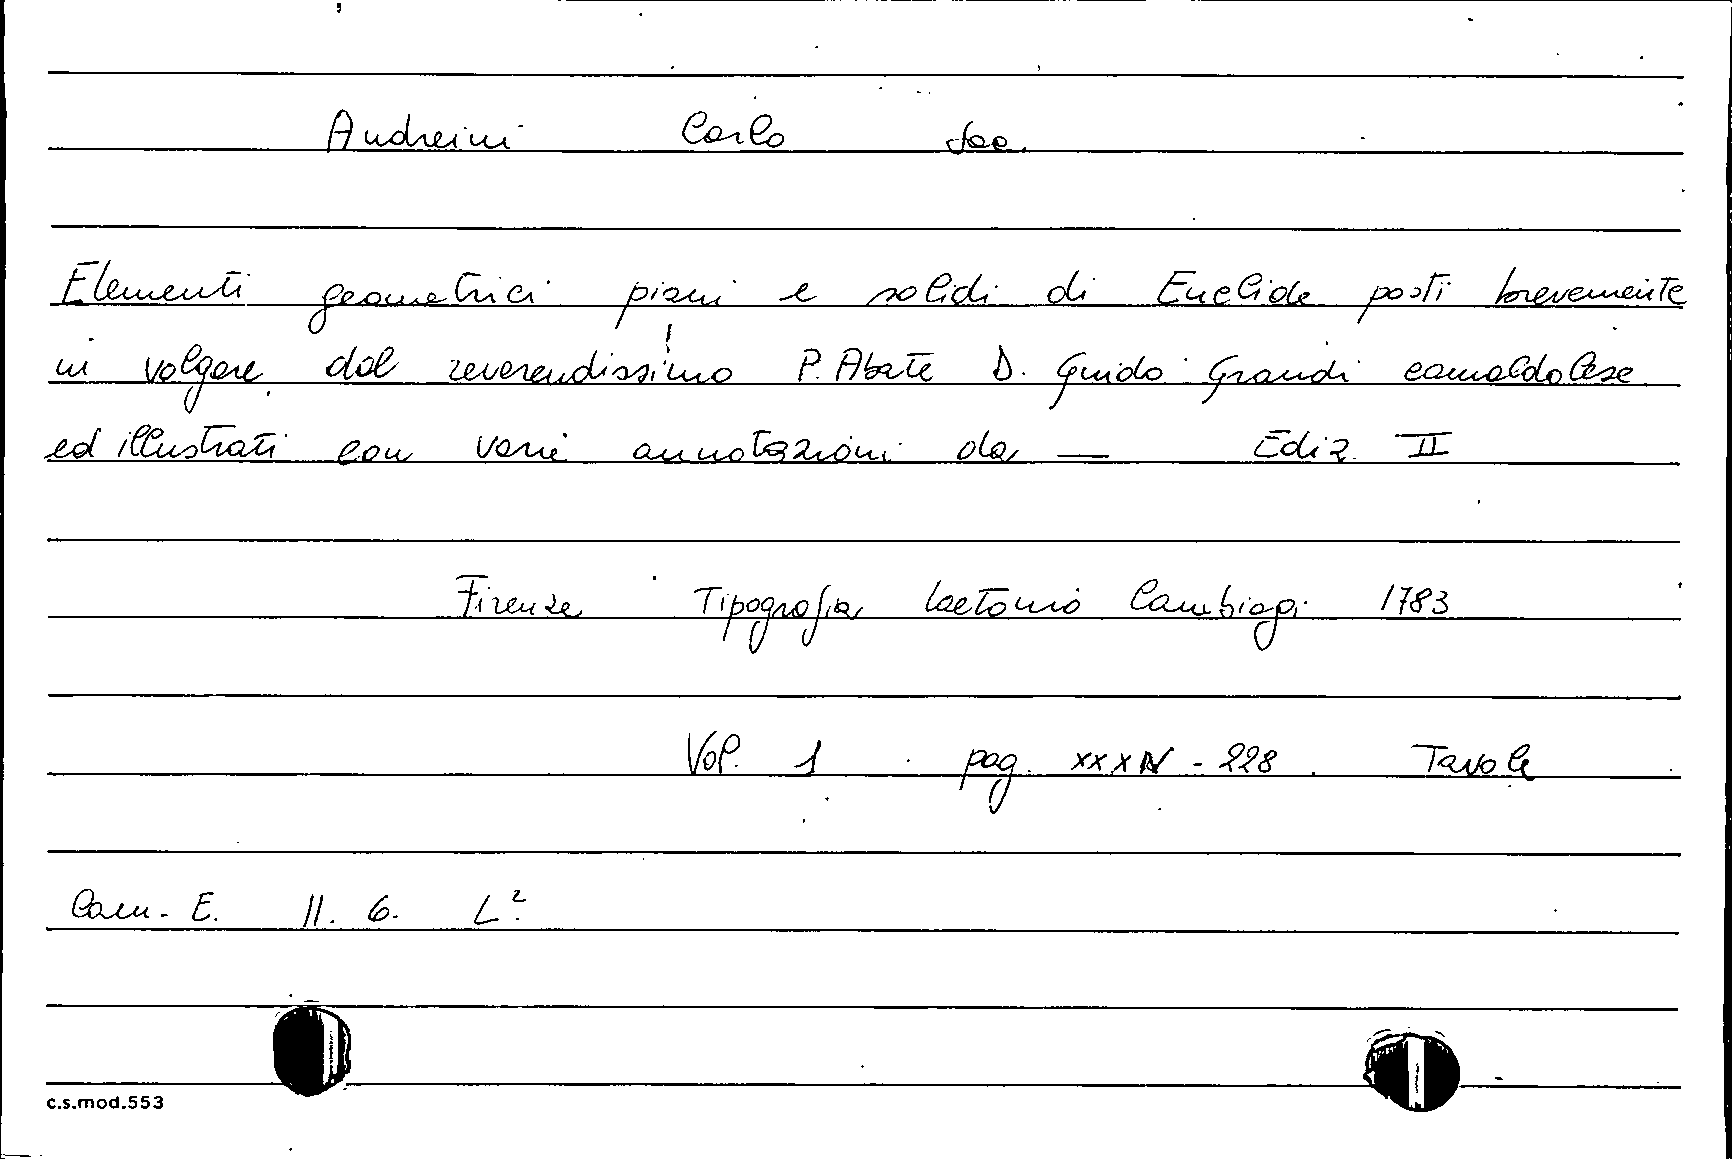 Andreini Carlo Sac.
Elementi geometrici piani e solidi di Euclide posti brevemente
in volgare dal reverendissimo P. Abate D. Guido Grandi camaldolese
ed illustrati con varie annotazioni da — Ediz. II
Firenze Tipografia Gaetano Cambiagi 1783
Vol. 1 pag. XXXIV - 228 Tavole
Cam. E. II. 6. L².
c.s.mod.553